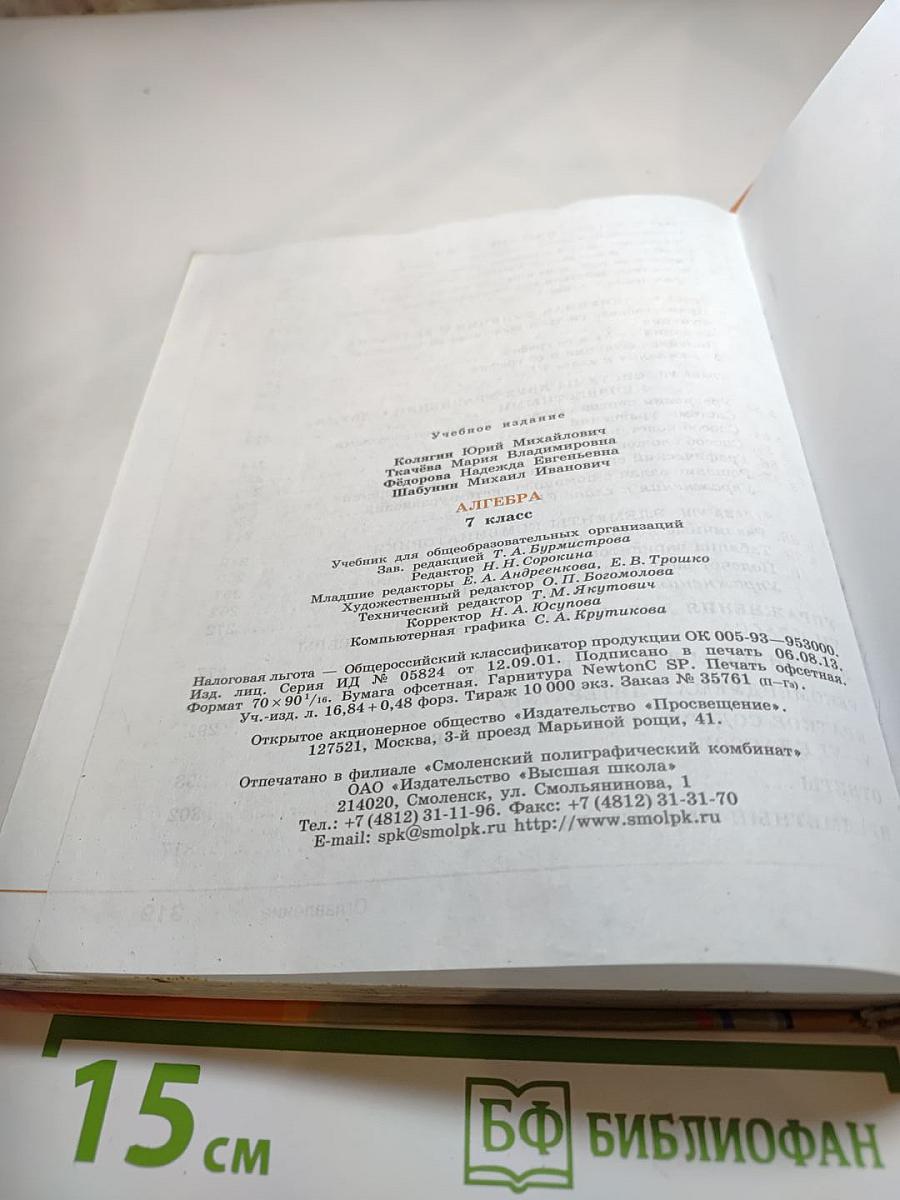 Учебное издание
Колягин Юрий Михайлович
Ткачёва Мария Владимировна
Фёдорова Надежда Евгеньевна
Шабунин Михаил Иванович
АЛГЕБРА
7 класс
Учебник для общеобразовательных организаций
Зав. редакцией Т. А. Бурмистрова
Редактор Н. Н. Сорокина
Младшие редакторы Е. А. Андреенкова, Е. В. Трошко
Художественный редактор О. П. Богомолова
Технический редактор Т. М. Якутович
Корректор Н. А. Юсупова
Компьютерная графика С. А. Крутикова
Налоговая льгота — Общероссийский классификатор продукции ОК 005-93—953000.
Изд. лиц. Серия ИД № 05824 от 12.09.01. Подписано в печать 06.08.13.
Формат 70×90 1/16. Бумага офсетная. Гарнитура NewtonC SP. Печать офсетная.
Уч.-изд. л. 16,84+0,48 форз. Тираж 10 000 экз. Заказ № 35761 (п—Гз).
Открытое акционерное общество «Издательство «Просвещение».
127521, Москва, 3-й проезд Марьиной рощи, 41.
Отпечатано в филиале «Смоленский полиграфический комбинат»
ОАО «Издательство «Высшая школа»
214020, Смоленск, ул. Смольянинова, 1
Тел.: +7 (4812) 31-11-96. Факс: +7 (4812) 31-31-70
E-mail: spk@smolpk.ru http://www.smolpk.ru
Оглавление 319
15 см
БФ БИБЛИОФАН